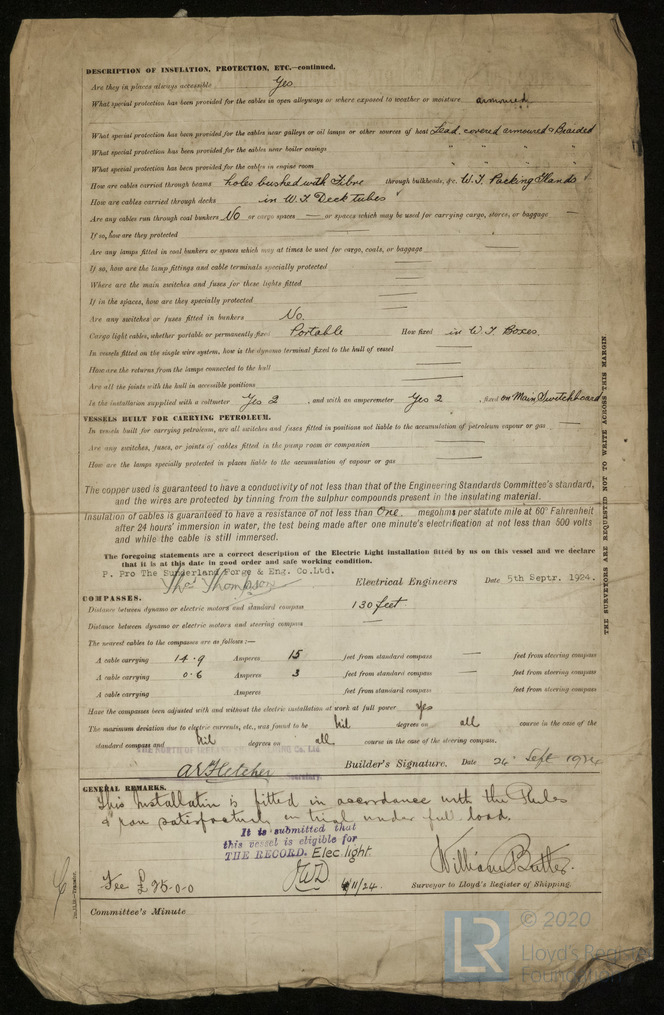 DESCRIPTION OF INSULATION, PROTECTION, ETC.—continued.
Are they in places always accessible Yes
What special protection has been provided for the cables in open alleyways or where exposed to weather or moisture armoured
What special protection has been provided for the cables near galleys or oil lamps or other sources of heat Lead covered armoured & Braided
What special protection has been provided for the cables near boiler casings " " " "
What special protection has been provided for the cables in engine room " " " "
How are cables carried through beams holes bushed with Fibre through bulkheads, &c. W.T. Packing Glands
How are cables carried through decks in W.T. Deck tubes
Are any cables run through coal bunkers No or cargo spaces — or spaces which may be used for carrying cargo, stores, or baggage —
If so, how are they protected —
Are any lamps fitted in coal bunkers or spaces which may at times be used for cargo, coals, or baggage —
If so, how are the lamp fittings and cable terminals specially protected —
Where are the main switches and fuses for these lights fitted —
If in the spaces, how are they specially protected —
Are any switches or fuses fitted in bunkers No.
Cargo light cables, whether portable or permanently fixed Portable How fixed in W.T. Boxes.
In vessels fitted on the single wire system, how is the dynamo terminal fixed to the hull of vessel —
How are the returns from the lamps connected to the hull —
Are all the joints with the hull in accessible positions —
Is the installation supplied with a voltmeter Yes 2, and with an amperemeter Yes 2, fixed on Main Switchboard
VESSELS BUILT FOR CARRYING PETROLEUM.
In vessels built for carrying petroleum, are all switches and fuses fitted in positions not liable to the accumulation of petroleum vapour or gas —
Are any switches, fuses, or joints of cables fitted in the pump room or companion —
How are the lamps specially protected in places liable to the accumulation of vapour or gas —
The copper used is guaranteed to have a conductivity of not less than that of the Engineering Standards Committee's standard,
and the wires are protected by tinning from the sulphur compounds present in the insulating material.
Insulation of cables is guaranteed to have a resistance of not less than One megohms per statute mile at 60° Fahrenheit
after 24 hours' immersion in water, the test being made after one minute's electrification at not less than 500 volts
and while the cable is still immersed.
The foregoing statements are a correct description of the Electric Light installation fitted by us on this vessel and we declare
that it is at this date in good order and safe working condition.
P. Pro The Sunderland Forge & Eng. Co.Ltd.
Thos Thompson Electrical Engineers Date 5th Septr. 1924.
COMPASSES.
Distance between dynamo or electric motors and standard compass 130 feet
Distance between dynamo or electric motors and steering compass —
The nearest cables to the compasses are as follows:—
A cable carrying 14.9 Amperes 15 feet from standard compass — feet from steering compass
A cable carrying 0.6 Amperes 3 feet from standard compass — feet from steering compass
A cable carrying Amperes feet from standard compass feet from steering compass
Have the compasses been adjusted with and without the electric installation at work at full power Yes
The maximum deviation due to electric currents, etc., was found to be nil degrees on all course in the case of the
standard compass and nil degrees on all course in the case of the steering compass.
Co. Ltd
Secretary.
Builder's Signature. Date 24 Sept 1924
GENERAL REMARKS.
This Installation is fitted in accordance with the Rules
& ran satisfactorily on trial under full load.
It is submitted that
this vessel is eligible for
THE RECORD. Elec light.
JWD /11/24.
William Butler.
Surveyor to Lloyd's Register of Shipping.
Fee £35-0-0
Committee's Minute
THE SURVEYORS ARE REQUESTED NOT TO WRITE ACROSS THIS MARGIN
LR
© 2020
Lloyd's Register
Foundation